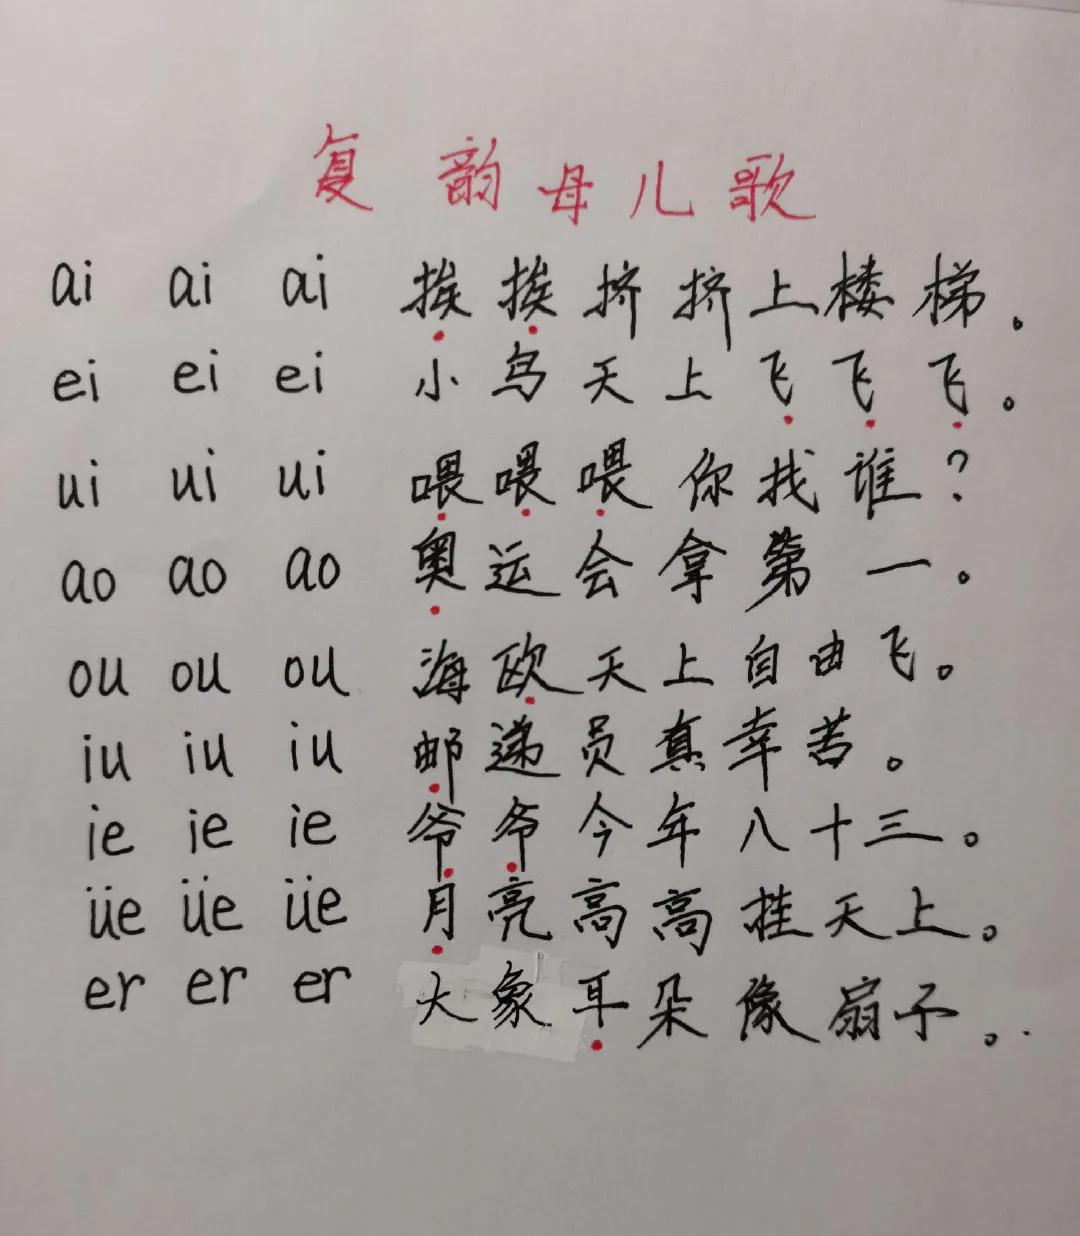 复韵母儿歌
ai ai ai 挨挨挤挤上楼梯。
ei ei ei 小鸟天上飞飞飞。
ui ui ui 喂喂喂你找谁？
ao ao ao 奥运会拿第一。
ou ou ou 海欧天上自由飞。
iu iu iu 邮递员真幸苦。
ie ie ie 爷爷今年八十三。
üe üe üe 月亮高高挂天上。
er er er 大象耳朵像扇子。